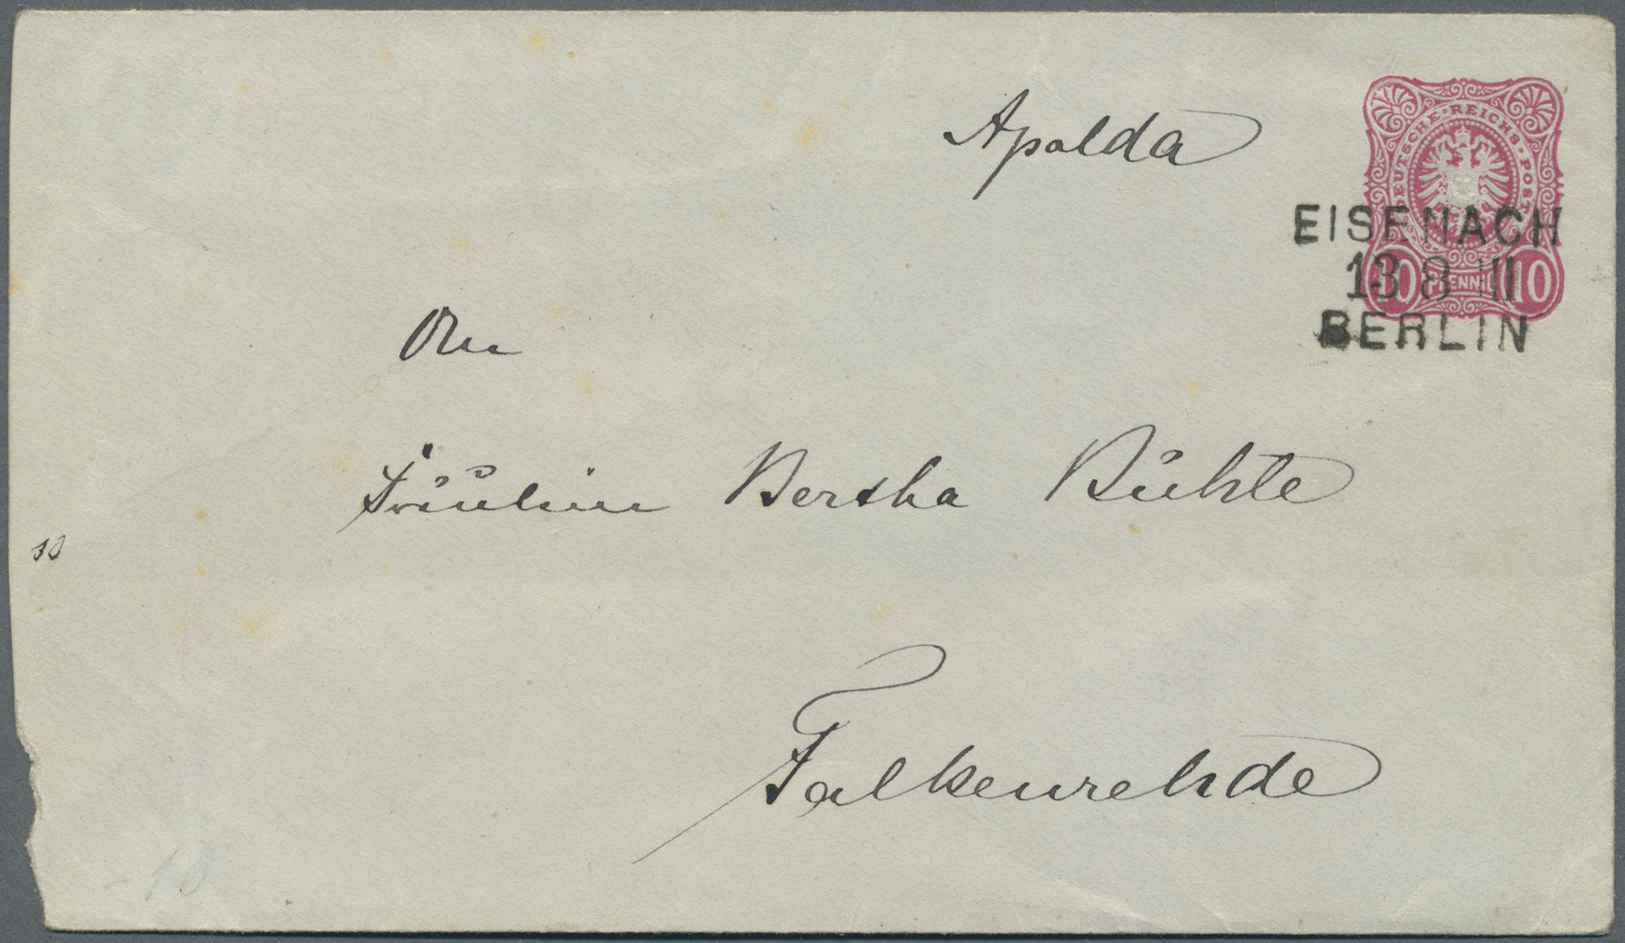 Apalda
DEUTSCHE · REICHS · POST
EISENACH
13 8 III
BERLIN
10 PFENNIG 10
An
Fräulein Bertha Bühle
10
Falkenrehde
-10